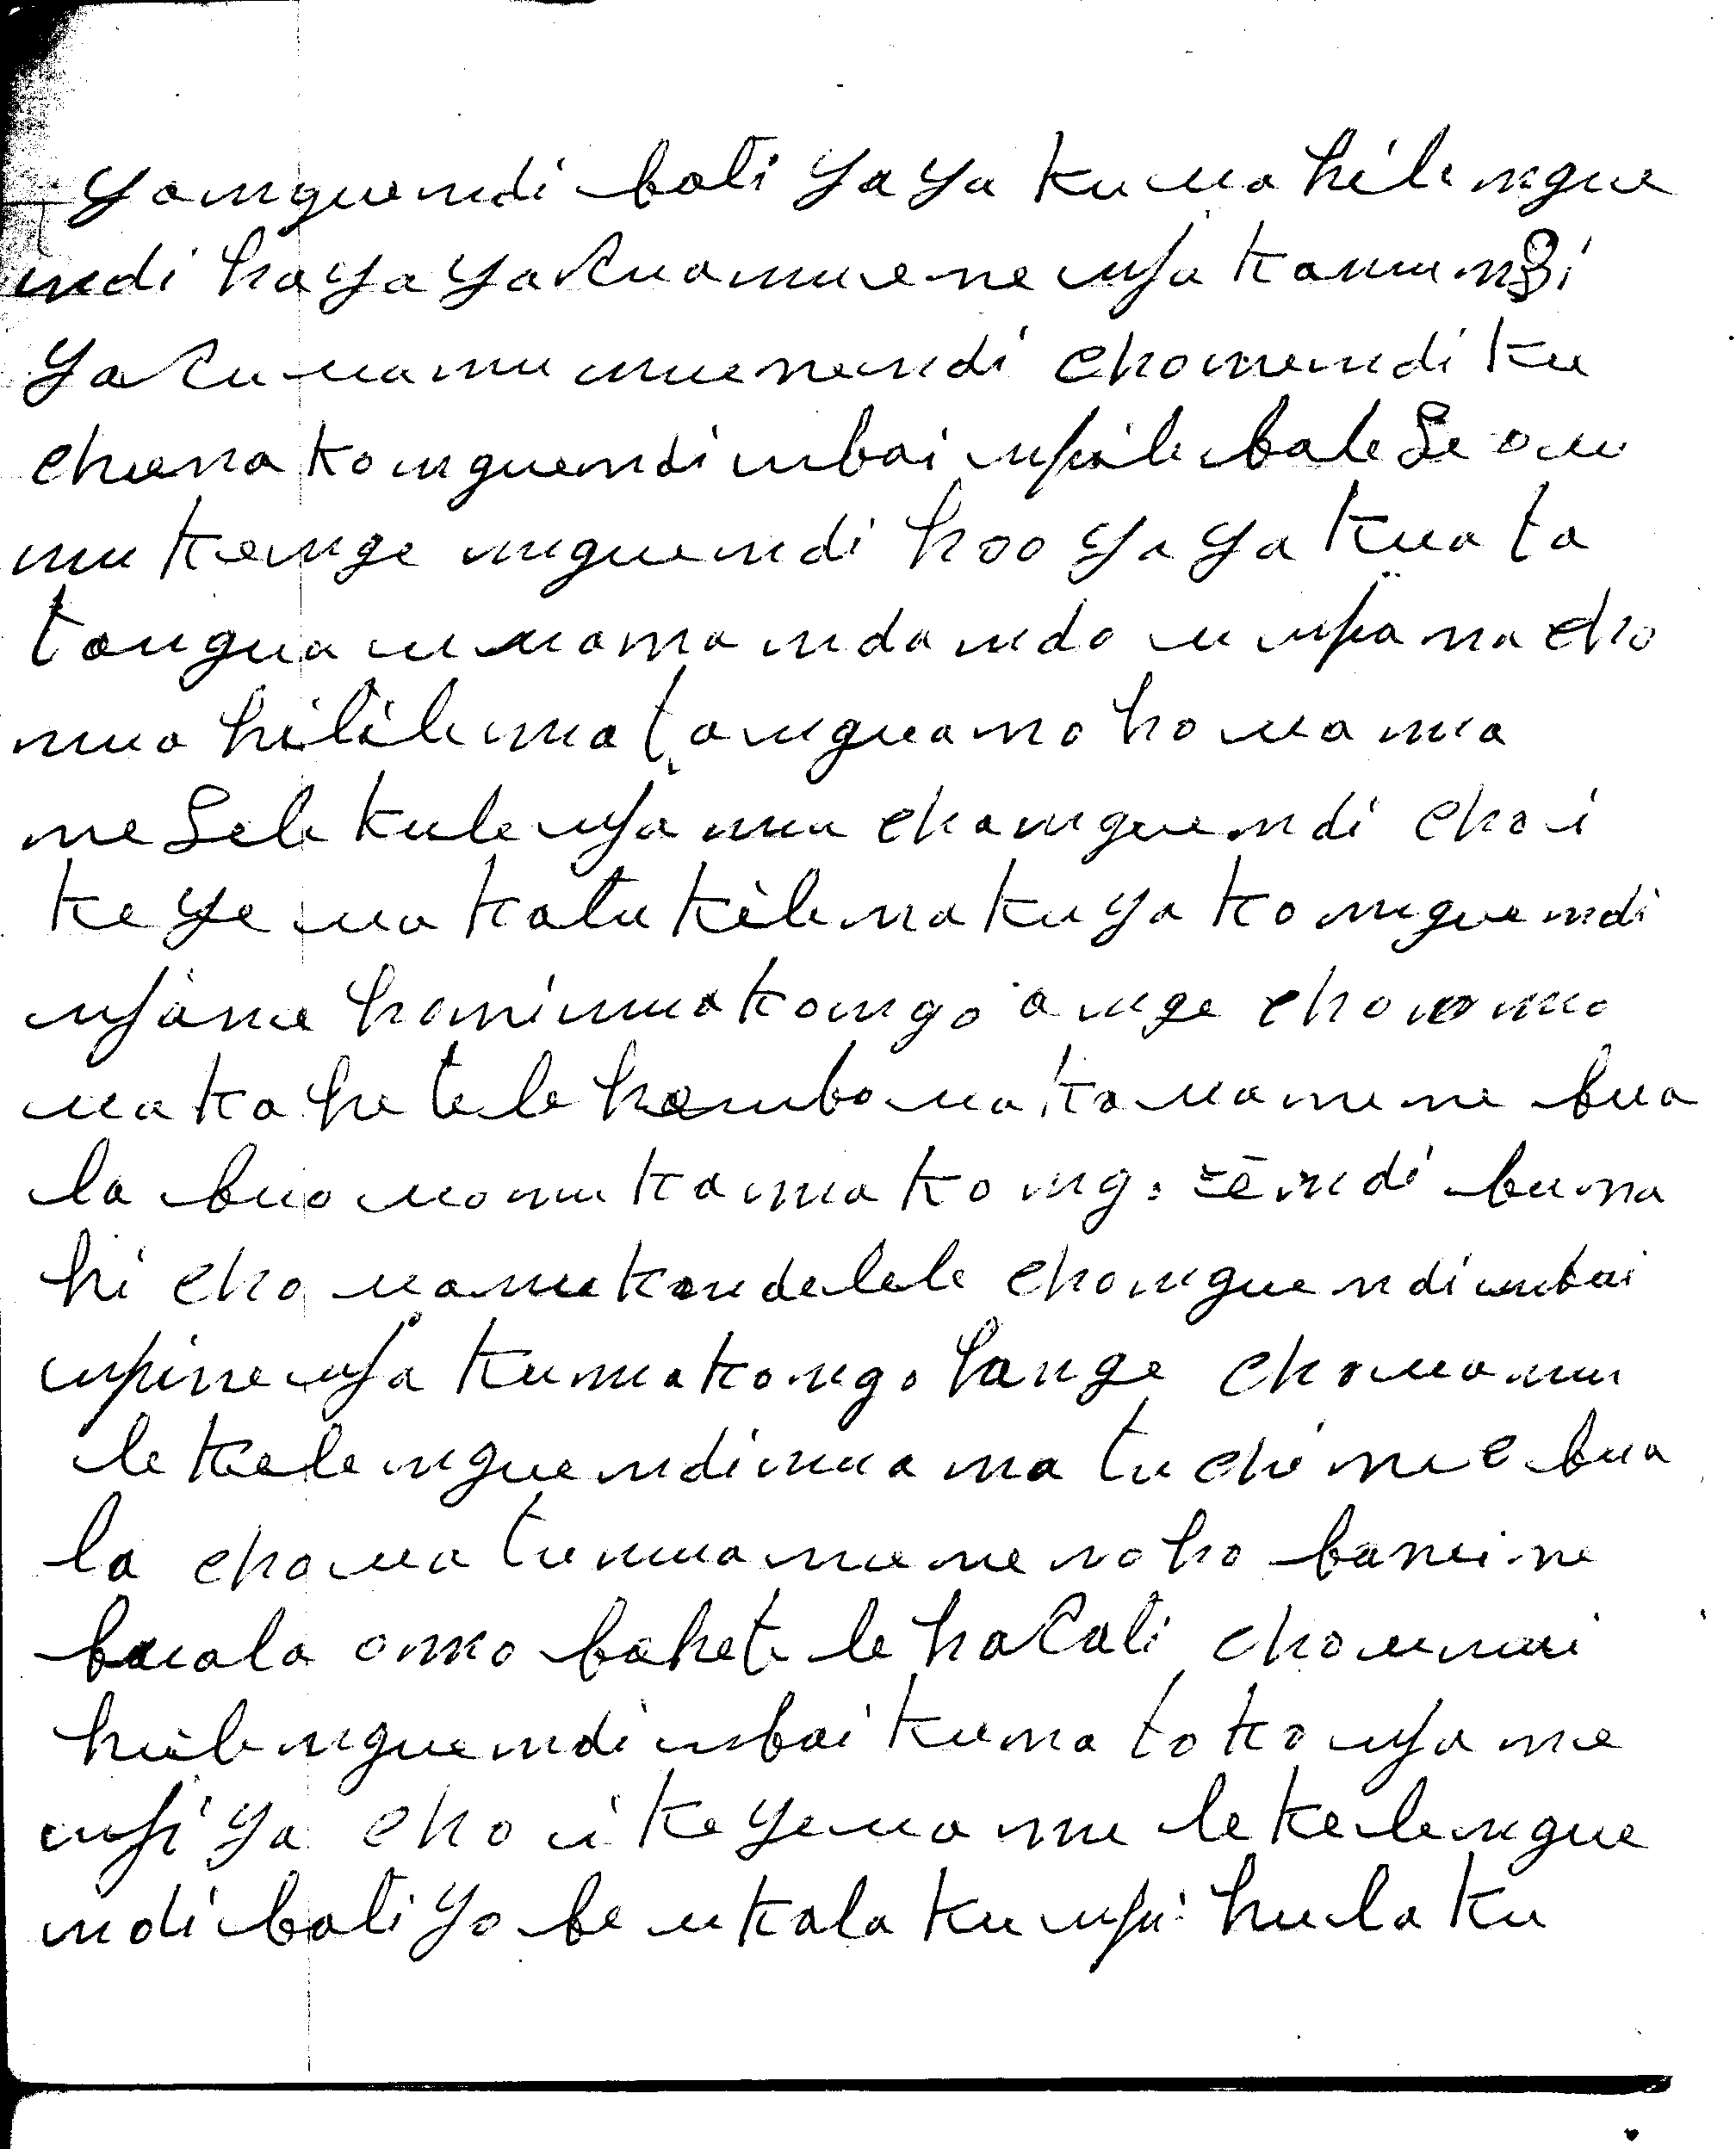 yanguendi bati yaya kuua hilengue
ndi haya yakuamuene mfa kamu nzi
yakuuamu muenendi chomuendi ku
chuena ko nguendi mbai mpile balese ou
mu kenge nguendi hoo ya ya kuata
tangua uuama ndando u mpana cho
mua hitile mua tanguana ho ua mua
ne sele kule mfa mu cha nguendi cho i
keye ua katukile na ku ya ko nguendi
mfanu hanimuakongo ange cho ua mua
ua ka hetele hambo ua ka ua mene bua
la buo ua mu kamuakongo zendi buna
hi cho uamukandelele cho nguendi mbai
mpine mfa kumuakongo hange cho ua mu
lekele nguendi mua na tuchi mu e bua
la cho ua tu muamuene noho bamine
buala omo bahetele hakati cho u mui
huile nguendi mbai kuna to ko mfa mu
mfi ya cho i keye ua mu lekelengue
ndi bati yo be u kala ku mfu hula ku